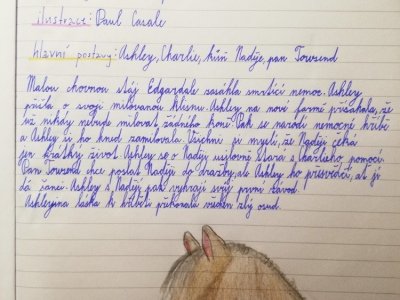 ilustrace: Paul Casale
hlavní postavy: Ashley, Charlie, kůň Naděje, pan Towsend
Malou chovnou stáj Edgardale zasáhla smrtící nemoc. Ashley
přišla o svoji milovanou klisnu. Ashley na nové farmě přísahala, že
už nikdy nebude milovat žádného koně. Pak se narodí nemocné hříbě
a Ashley si ho hned zamilovala. Všichni si myslí, že Naději čeká
jen krátký život. Ashley se o Naději usilovně stará s Charlieho pomocí.
Pan Towsend chce poslat Naději do dražby, ale Ashley ho přesvědčí, ať jí
dá šanci. Ashley s Nadějí pak vyhrají svůj první závod.
Ashleyina láska k hříběti překonala všechen zlý osud.